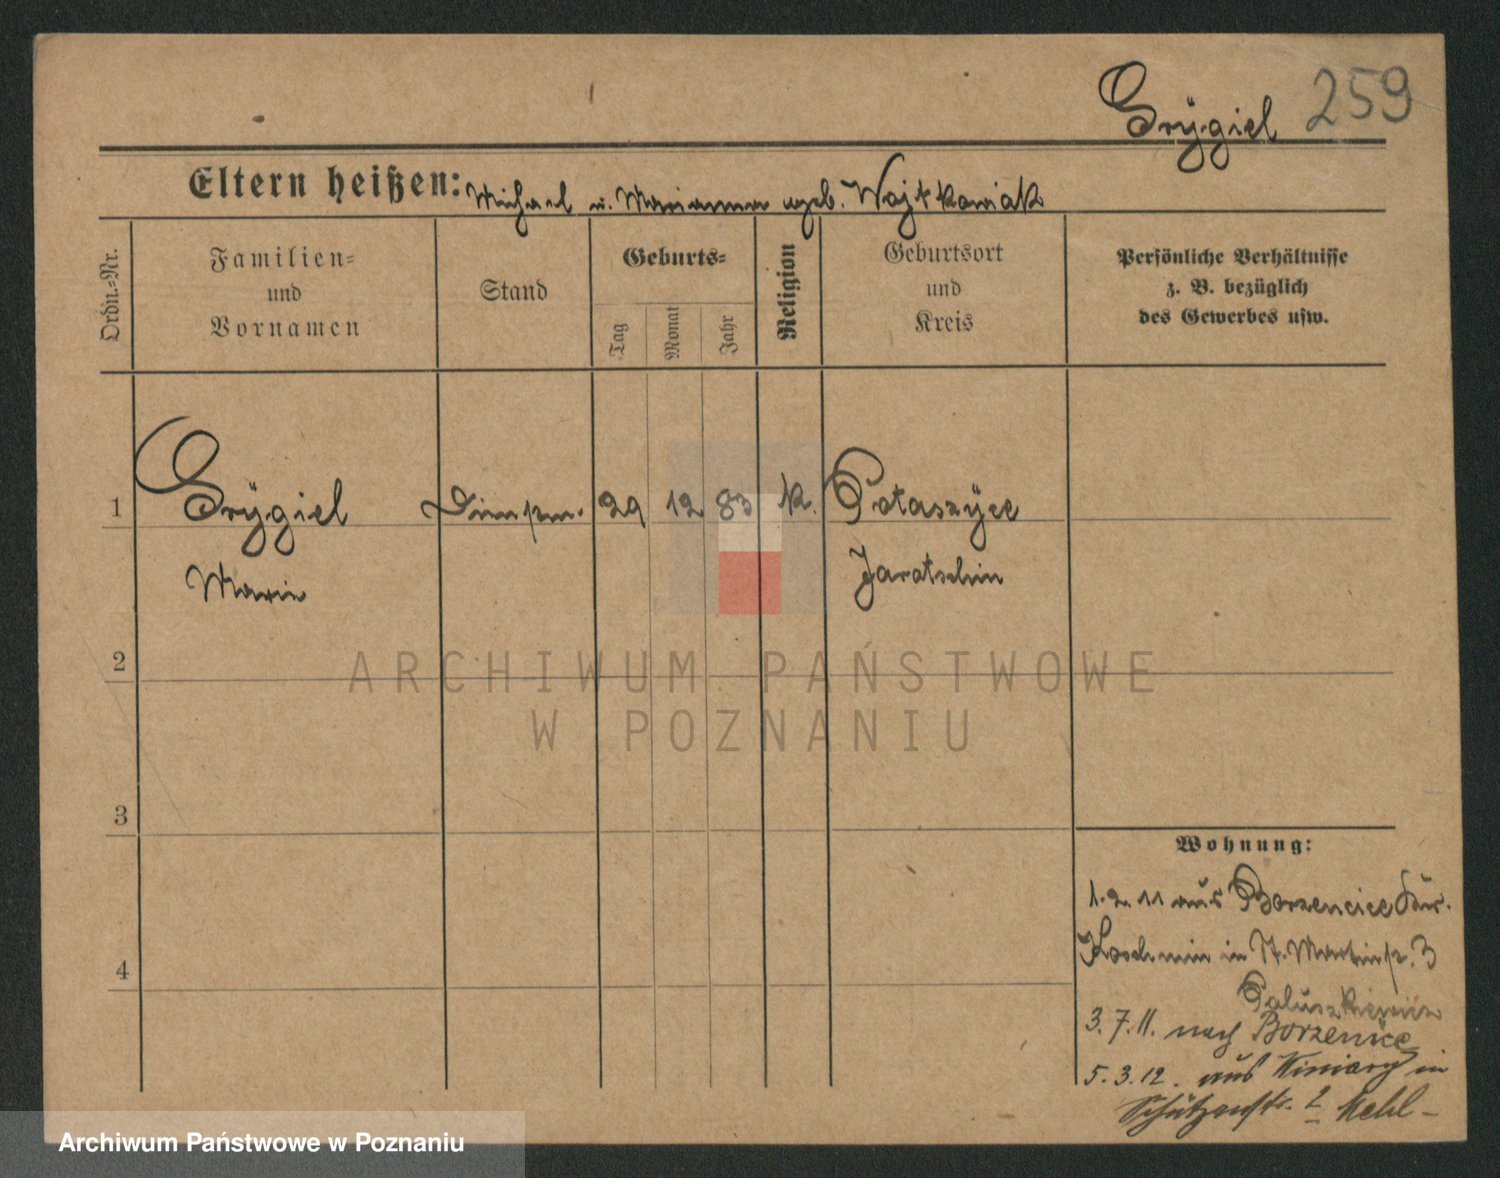 Grÿgiel 259
Eltern heißen: Michael u. Marianna geb. Wojtkowiak
Ordn.-Nr.
Familien-
und
Vornamen
Stand
Geburts-
Tag
Monat
Jahr
Religion
Geburtsort
und
Kreis
Persönliche Verhältnisse
z. B. bezüglich
des Gewerbes usw.
1 Grÿgiel 29 12 83 k. Potaszÿce
Marie Jarotschin
2
ARCHIWUM PAŃSTWOWE
W POZNANIU
3
Wohnung:
1.2.11 aus Borzencice
Koschmin in St. Martinstr. 3
4
3.7.11. nach Borzencice
5.3.12. aus Winiary in
Schützenstr. 2
Archiwum Państwowe w Poznaniu